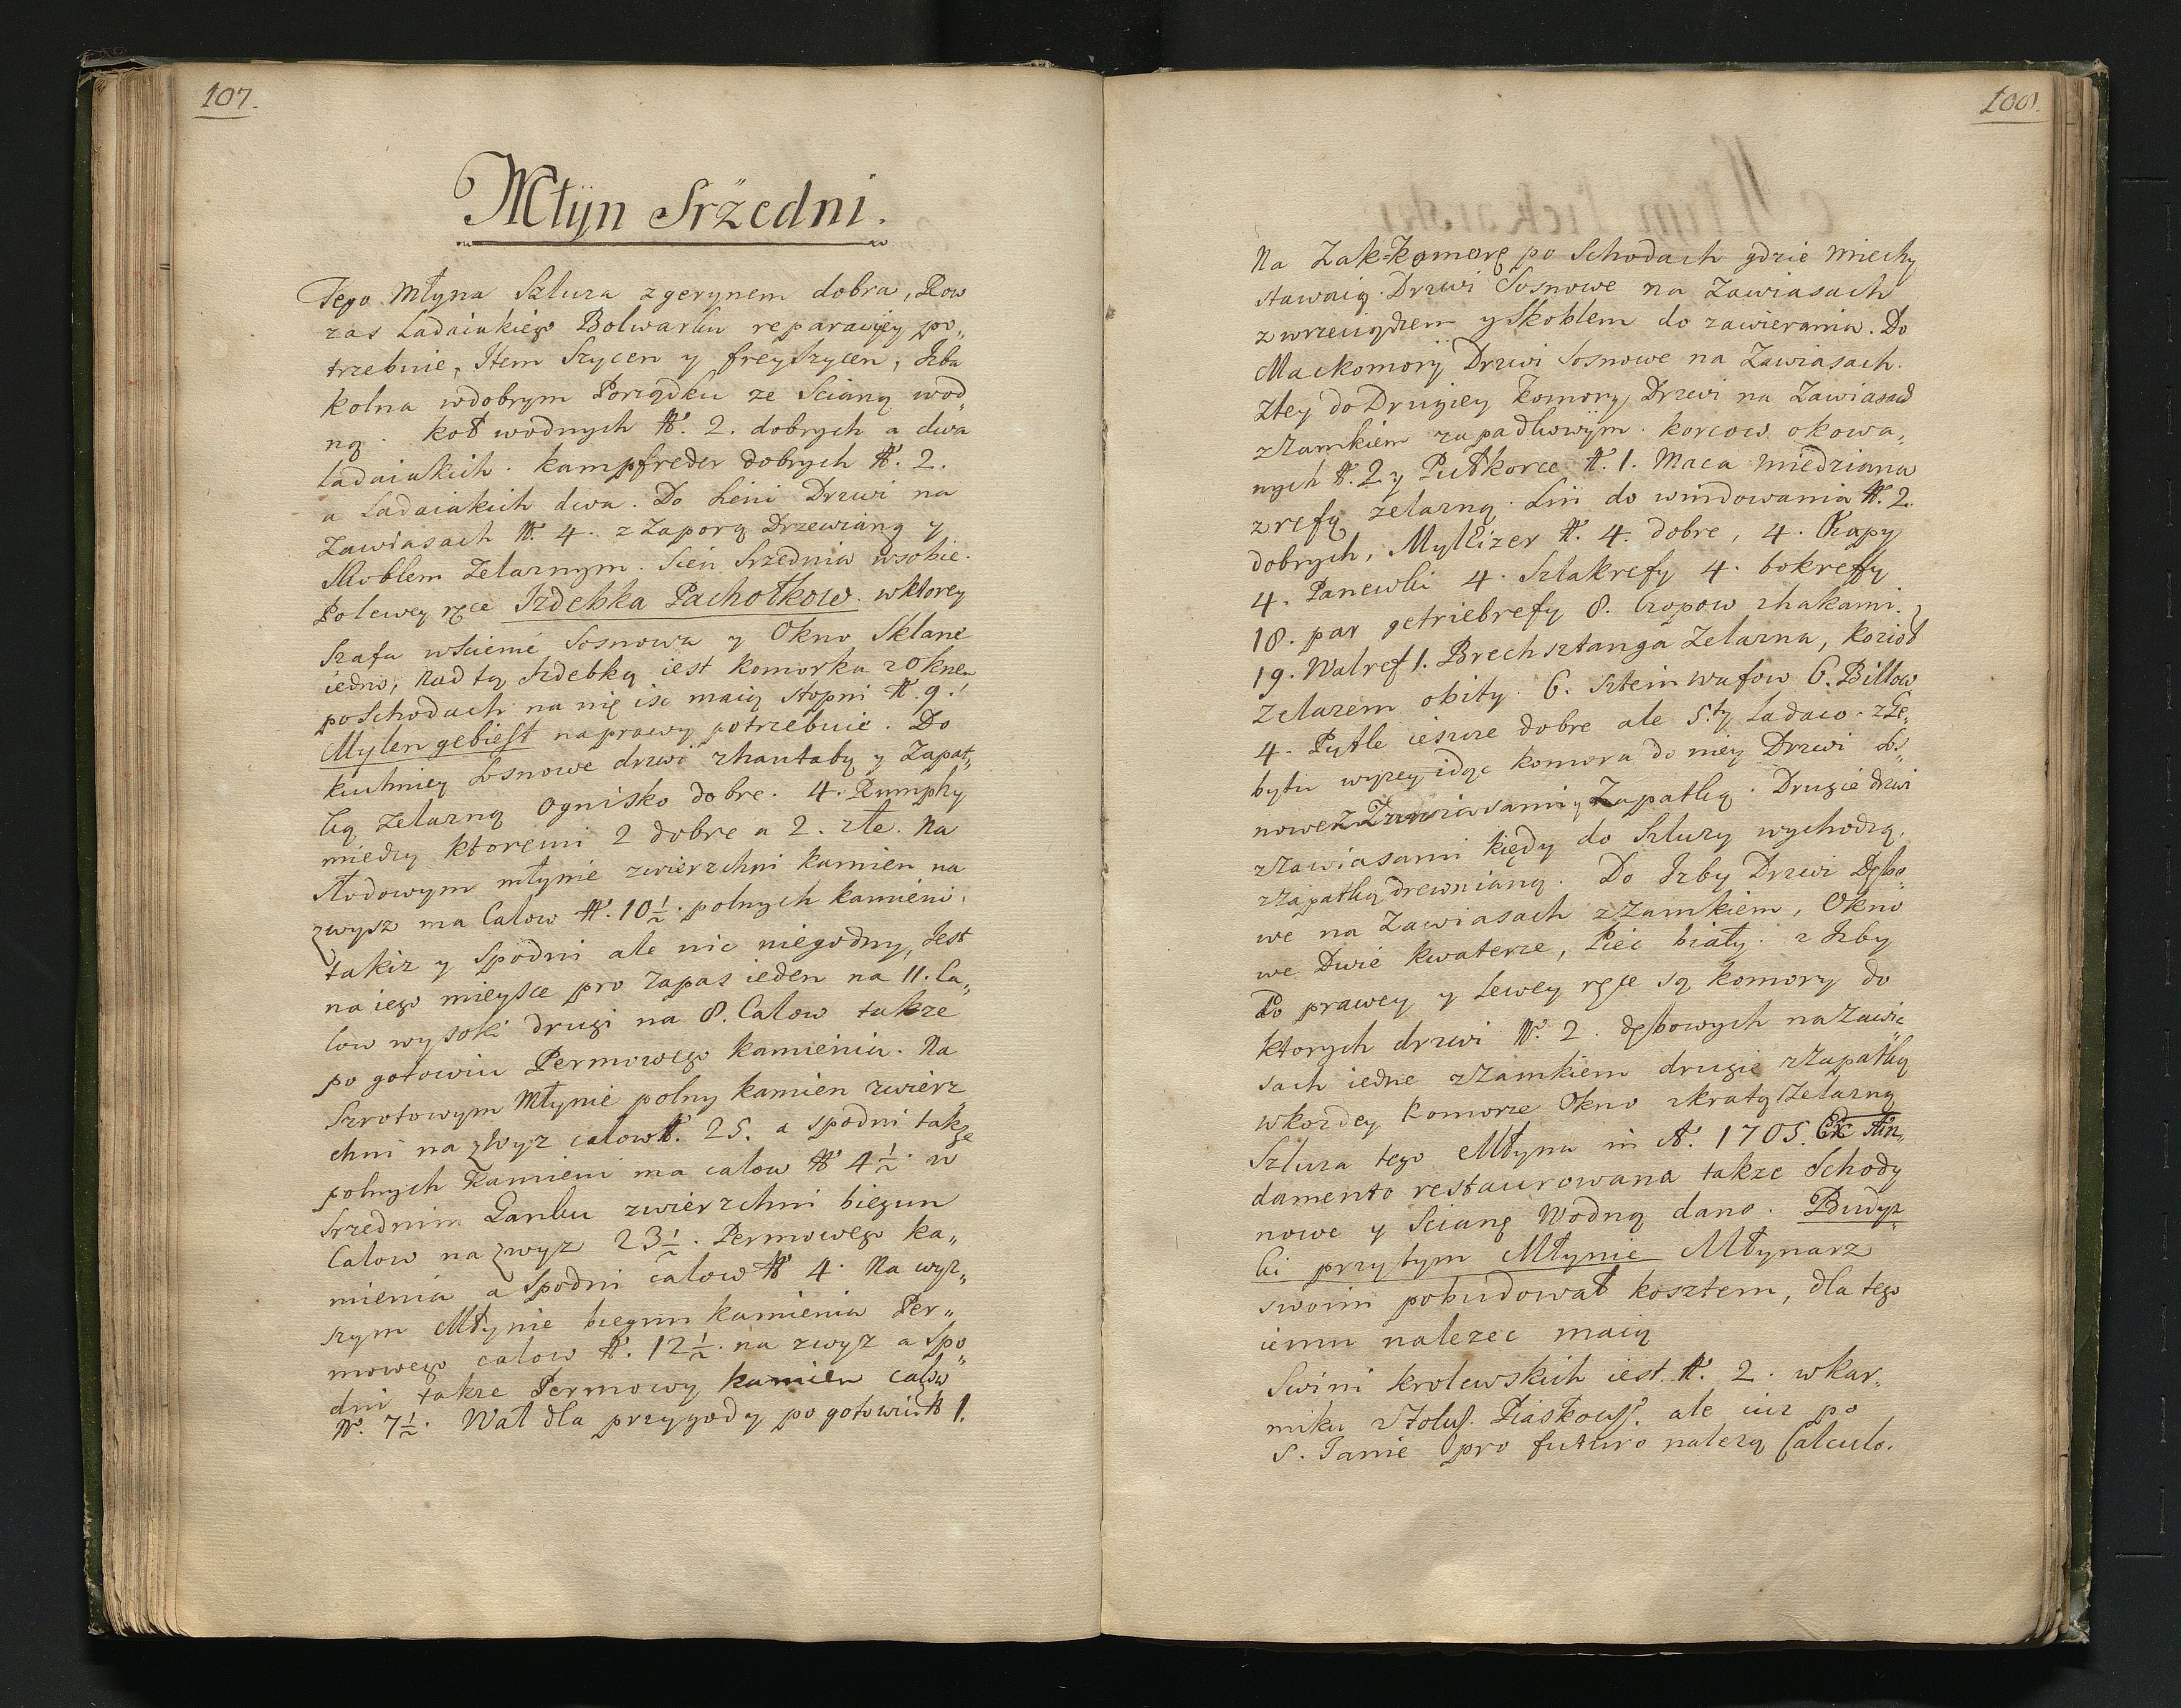 107.
Młÿn Srzedni.
Tego Młyna Szluza z gerynem dobra, Row
zas Ladaiakiego Bolwarku reparacÿey po„
trzebuie, Item Szycen y freyszycen, Izba
kolna wdobrym Porządku ze Scianą wod„
ną. koł wodnych N. 2. dobrych a dwa
ladaiakich. kampfreder dobrych N. 2.
a Ladaiakich dwa. Do Sieni Drzwi na
Zawiasach N. 4. z Zaporą Drzewianą y
Skoblem Zelaznym. Sień Srzednia wsobie.
Po lewey ręce Izdebka Pachołkow. wktorey
Szafa wścienie Sosnowa y Okno Sklane
iedno, nad tą Izdebką iest komorka z oknem
po Schodach na nię isc maią stopni N. 9.
Mylen gebiest naprawy potrzebuie. Do
kuchniey Sosnowe drzwi z hantabą y Zapat„
ką Zelazną Ognisko dobre. 4. Rumphy
miedzy ktoremi 2 dobre a 2. złe. Na
słodowym młynie zwierzchni kamien na
zwysz ma Calow N. 10½. polnych kamieni.
takiz y Spodni ale nic niegodny, Jest
na iego mieysce pro Zapas ieden na 11. Ca„
low wysoki drugi na 8. Calow takze
po gotowiu Permowego kamienia. Na
Szrotowym Młynie polny kamien zwierz„
chni na zwyz calow N. 25. a spodni takze
polnych kamieni ma calow N. 4½. w
Srzednim Ganku zwierzchni biegun
Calow na zwyz 23½. Permowego ka„
mienia a Spodni calow N. 4. Na wyz„
szym Młynie biegun kamienia Per„
mowego calow N. 12½. na zwyz a Spo„
dni takze Permowy kamien calow
N. 7½. Wał dla przygody po gotowiu N. 1.
108.
Na Zak-komorę po Schodach gdzie Miechy
stawaią. Drzwi Sosnowe na Zawiasach
z wrzeciądzem y Skoblem do zawierania. Do
Mackomorÿ Drzwi Sosnowe na Zawiasach.
Ztey do Drugiey komory Drzwi na Zawiasach
z Zamkiem zapadkowÿm. korcow okowa„
nych N. 2 y Pułkorce N. 1. Maca Miedziana
z refą zelazną. Lin do windowania N. 2.
dobrych, Mylizer N. 4. dobre, 4. Kapy
4. Panewki 4. Szlakrefy 4. bokrefy
18. par getriebrefy 8. Czopow z hakami
19. Walref 1. Brechsztanga Zelazna, kozioł
Zelazem obity. 6. sztein wafow 6. Billow
4. Pytle ieszcze dobre ale 5.ty Ladaco. z Ge„
bytu wyzey idąc komora do niey Drzwi Sos„
nowe z Zawiasami y Zapatką. Drugie drzwi
z Zawiasami kiedy do Szluzy wychodzą.
z Zapatką drewnianą. Do Izby Drzwi Dębo„
we na Zawiasach z Zamkiem, Okno
we Dwie kwaterze, Piec biały. z Izby
Po prawey y Lewey ręce są komory do
ktorych drzwi N. 2. dębowych na Zawia„
sach iedne z Zamkiem drugie z Zapatką
wkozdey komorze Okno z kratą Zelazną
Szluza tego Młyna in A. 1705. Ex fun„
damento restaurowana takze Schody
nowe y Scianę Wodną dano. Budyn„
ki przytym Młynie Młynarz
swoim pobudował kosztem, dla tego
iemu nalezec maią
Swini krolewskich iest. N. 2. wkar„
miku z Folus. Piaskows. ale iuz po
S. Janie pro futuro nalezą Calculo.